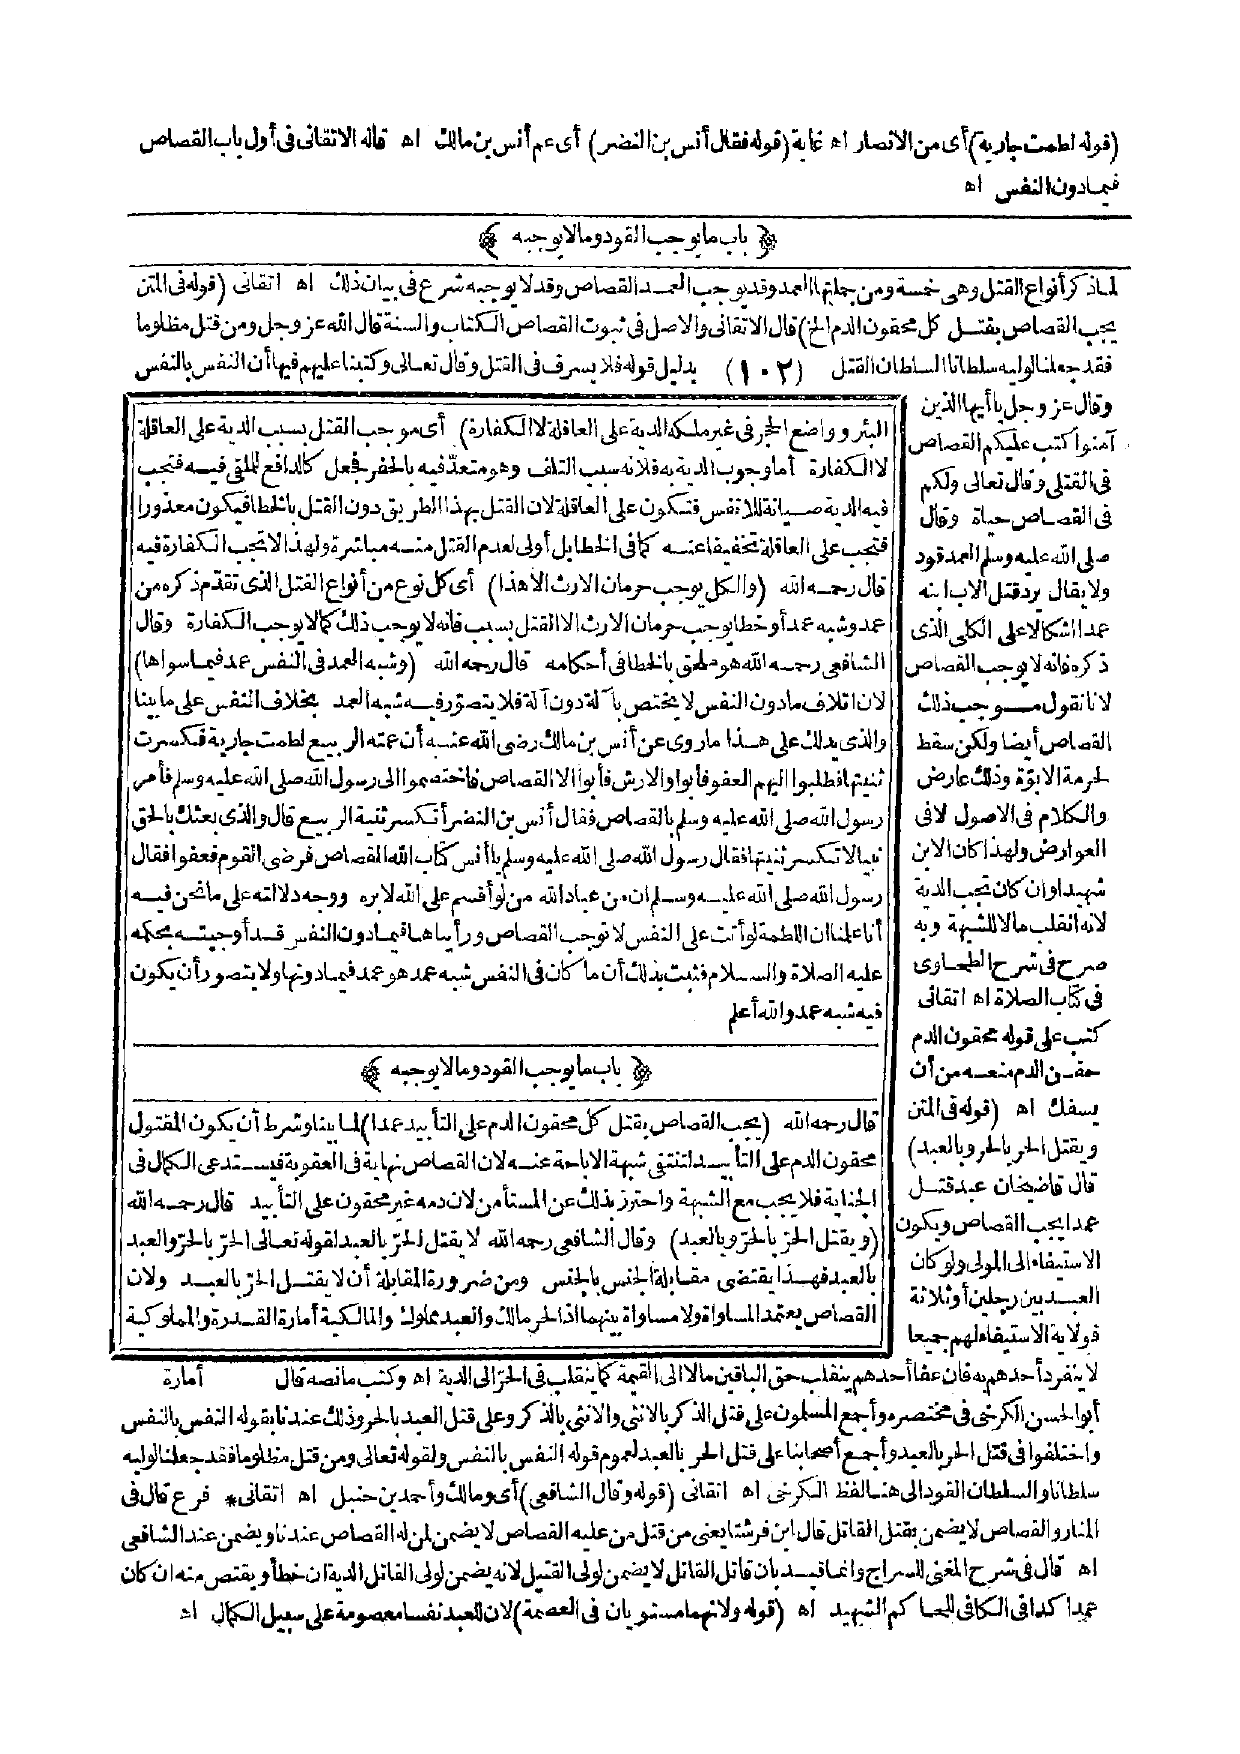 (قوله لطمت جارية) أى من الانصار اه غاية (قوله فقال أنس بن النضر) أى عم أنس بن مالك اه قاله الاتقانى فى أول باب القصاص
فيمادون النفس اه
﴿ باب ما يوجب القود ومالا يوجبه ﴾
لماذكر أنواع القتل وهى خمسة ومن جملتها العمد وقد يوجب العمد القصاص وقد لا يوجبه شرع فى بيان ذلك اه اتقانى (قوله فى المتن
يجب القصاص بقتل كل محقون الدم الخ) قال الاتقانى والاصل فى ثبوت القصاص الكتاب والسنة قال الله عز وجل ومن قتل مظلوما
فقد جعلنا لوليه سلطانا السلطان القتل (١٠٢) بدليل قوله فلا يسرف فى القتل وقال تعالى وكتبنا عليهم فيها أن النفس بالنفس
وقال عز وجل ياأيها الذين
آمنوا كتب عليكم القصاص
فى القتلى وقال تعالى ولكم
فى القصاص حياة وقال
صلى الله عليه وسلم العمد قود
ولا يقال يرد قتل الاب ابنه
عمدا اشكالا على الكلى الذى
ذكره فانه لا يوجب القصاص
لانا نقول موجب ذلك
القصاص أيضا ولكن سقط
لحرمة الابوة وذلك عارض
والكلام فى الاصول لا فى
العوارض ولهذا كان الابن
شهيدا وان كان تجب الدية
لانه انقلب مالا للشبهة وبه
صرح فى شرح الطحاوى
فى كتاب الصلاة اه اتقانى
كتب على قوله محقون الدم
حقن الدم منعه من أن
يسفك اه (قوله فى المتن
ويقتل الحر بالحر وبالعبد)
قال قاضيخان عبد قتل
عمدا يجب القصاص ويكون
الاستيفاء الى المولى ولو كان
العبد بين رجلين أو ثلاثة
فولاية الاستيفاء لهم جميعا
البئر وواضع الحجر فى غير ملكه الدية على العاقلة لا الكفارة) أى موجب القتل بسبب الدية على العاقلة
لا الكفارة أما وجوب الدية به فلانه سبب التلف وهو متعد فيه بالحفر فجعل كالدافع الملقى فيه فتجب
فيه الدية صيانة للانفس فتكون على العاقلة لان القتل بهذا الطريق دون القتل بالخطا فيكون معذورا
فتجب على العاقلة تخفيفا عنه كما فى الخطا بل أولى لعدم القتل منه مباشرة ولهذا لا تجب الكفارة فيه
قال رحمه الله (والكل يوجب حرمان الارث الا هذا) أى كل نوع من أنواع القتل الذى تقدم ذكره من
عمد وشبه عمد أو خطا يوجب حرمان الارث الا القتل بسبب فانه لا يوجب ذلك كما لا يوجب الكفارة وقال
الشافعى رحمه الله هو ملحق بالخطا فى أحكامه قال رحمه الله (وشبه العمد فى النفس عمد فيما سواها)
لان اتلاف مادون النفس لا يختص بآلة دون آلة فلا يتصور فيه شبه العمد بخلاف النفس على ما بينا
والذى يدلك على هذا ما روى عن أنس بن مالك رضى الله عنه أن عمته الربيع لطمت جارية فكسرت
ثنيتها فطلبوا اليهم العفو فأبوا والارش فأبوا الا القصاص فاختصموا الى رسول الله صلى الله عليه وسلم فأمر
رسول الله صلى الله عليه وسلم بالقصاص فقال أنس بن النضر أتكسر ثنية الربيع قال والذى بعثك بالحق
نبيا لا تكسر ثنيتها فقال رسول الله صلى الله عليه وسلم ياأنس كتاب الله القصاص فرضى القوم فعفوا فقال
رسول الله صلى الله عليه وسلم ان من عباد الله من لو أقسم على الله لابره ووجه دلالته على ما نحن فيه
أنا علمنا ان اللطمة لو أتت على النفس لا توجب القصاص ورأيناها فيمادون النفس قد أوجبته بحكمه
عليه الصلاة والسلام فثبت بذلك أن ما كان فى النفس شبه عمد هو عمد فيمادونها ولا يتصور أن يكون
فيه شبه عمد والله أعلم
﴿ باب ما يوجب القود ومالا يوجبه ﴾
قال رحمه الله (يجب القصاص بقتل كل محقون الدم على التأبيد عمدا) لما بينا وشرط أن يكون المقتول
محقون الدم على التأبيد لتنتفى شبهة الاباحة عنه لان القصاص نهاية فى العقوبة فيستدعى الكمال فى
الجناية فلا يجب مع الشبهة واحترز بذلك عن المستأمن لان دمه غير محقون على التأبيد قال رحمه الله
(ويقتل الحر بالحر وبالعبد) وقال الشافعى رحمه الله لا يقتل الحر بالعبد لقوله تعالى الحر بالحر والعبد
بالعبد فهذا يقتضى مقابلة الجنس بالجنس ومن ضرورة المقابلة أن لا يقتل الحر بالعبد ولان
القصاص يعتمد المساواة ولا مساواة بينهما اذ الحر مالك والعبد مملوك والمالكية أمارة القدرة والمملوكية
أمارة
لا ينفرد أحدهم به فان عفا أحدهم ينقلب حق الباقين مالا الى القيمة كما ينقلب فى الحر الى الدية اه وكتب مانصه قال
أبو الحسن الكرخى فى مختصره وأجمع المسلمون على قتل الذكر بالانثى والانثى بالذكر وعلى قتل العبد بالحر وذلك عندنا بقوله النفس بالنفس
واختلفوا فى قتل الحر بالعبد وأجمع أصحابنا على قتل الحر بالعبد لعموم قوله النفس بالنفس ولقوله تعالى ومن قتل مظلوما فقد جعلنا لوليه
سلطانا والسلطان القود الى هنا لفظ الكرخى اه اتقانى (قوله وقال الشافعى) أى ومالك وأحمد بن حنبل اه اتقانى * فرع قال فى
المنار والقصاص لا يضمن بقتل القاتل قال ابن فرشتا يعنى من قتل من عليه القصاص لا يضمن لمن له القصاص عندنا ويضمن عند الشافعى
اه قال فى شرح المغنى للسراج وانما قيد بان قاتل القاتل لا يضمن لولى القتيل لانه يضمن لولى القاتل الدية ان خطأ ويقتص منه ان كان
عمدا كذا فى الكافى للحاكم الشهيد اه (قوله ولانهما مستويان فى العصمة) لان للعبد نفسا معصومة على سبيل الكمال اه